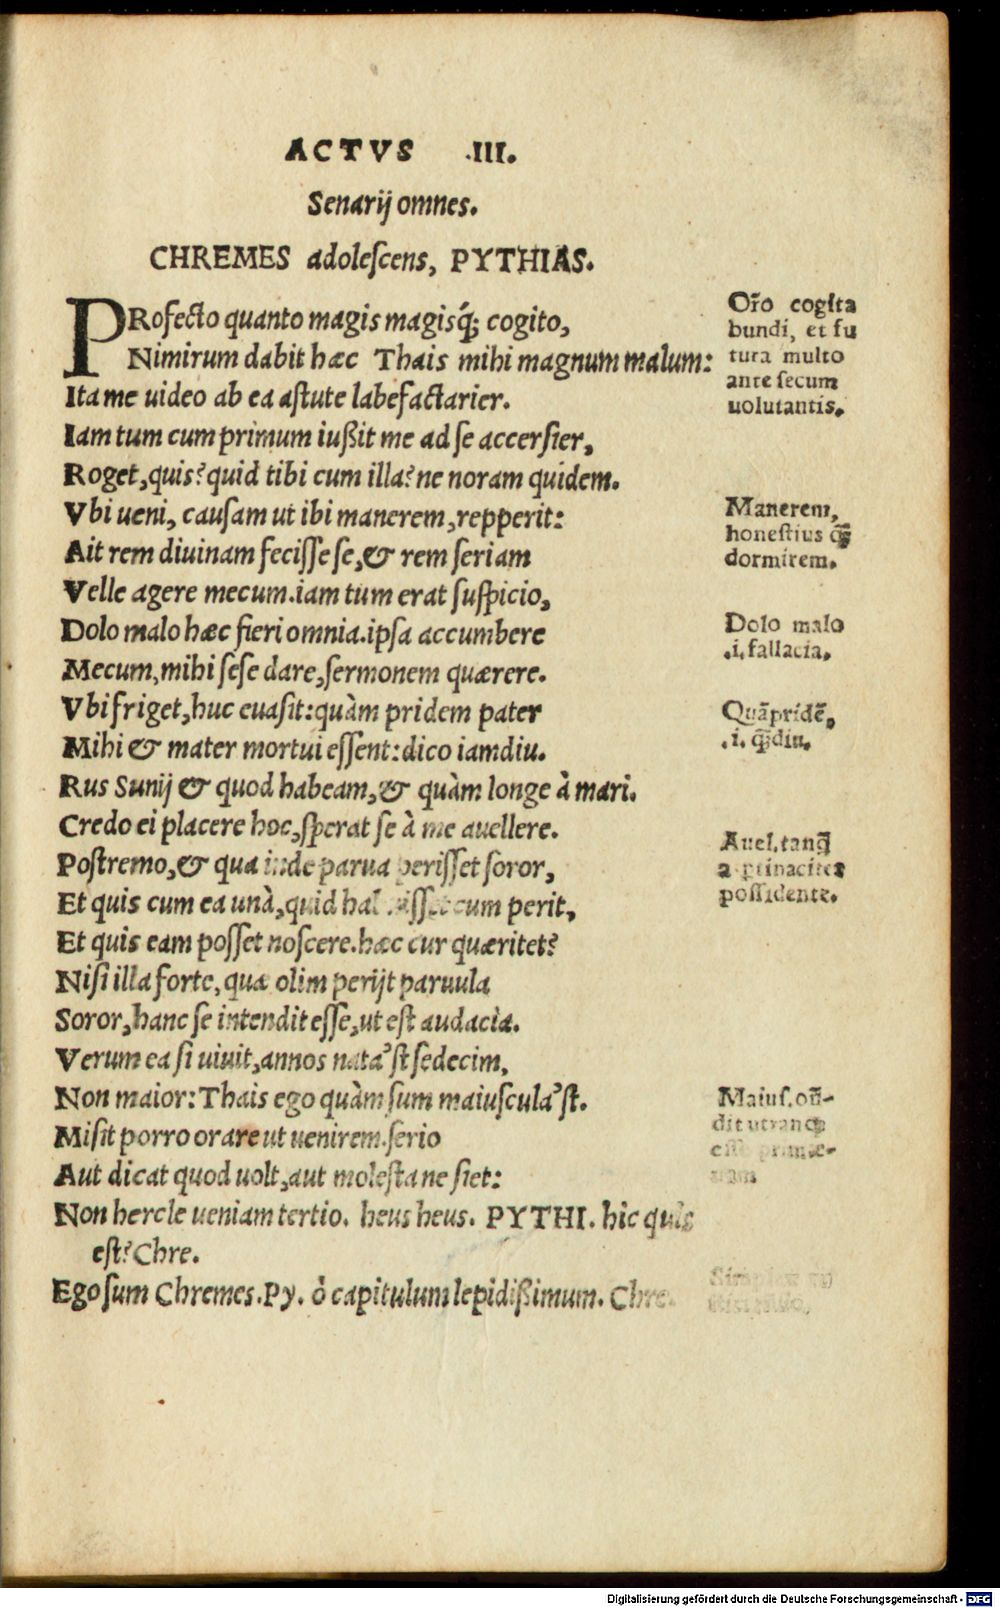 ACTVS .III.
Senarij omnes.
CHREMES adolescens, PYTHIAS.
PRofecto quanto magis magisq́; cogito,
Nimirum dabit hæc Thais mihi magnum malum:
Ita me uideo ab ea astute labefactarier.
Iam tum cum primum iußit me ad se accersier,
Roget, quis? quid tibi cum illa? ne noram quidem.
Vbi ueni, causam ut ibi manerem, repperit:
Ait rem diuinam fecisse se, & rem seriam
Velle agere mecum. iam tum erat suspicio,
Dolo malo hæc fieri omnia. ipsa accumbere
Mecum, mihi sese dare, sermonem quærere.
Vbi friget, huc euasit: quàm pridem pater
Mihi & mater mortui essent: dico iamdiu.
Rus Sunij & quod habeam, & quàm longe à mari.
Credo ei placere hoc, sperat se à me auellere.
Postremo, & qua inde parua perisset soror,
Et quis cum ea unà, quid cum perit,
Et quis eam posset noscere. hæc cur quæritet?
Nisi illa forte, quæ olim perijt paruula
Soror, hanc se intendit esse, ut est audacia.
Verum ea si uiuit, annos nata'st sedecim,
Non maior: Thais ego quàm sum maiuscula'st.
Misit porro orare ut uenirem. serio
Aut dicat quod uolt, aut molesta ne siet:
Non hercle ueniam tertio. heus heus. PYTHI. hic quis
est? Chre.
Ego sum Chremes. Py. ô capitulum lepidißimum. Chre.
Or̃o cogita
bundi, et fu
tura multo
ante secum
uolutantis.
Manerem,
honestius q̃
dormirem.
Dolo malo
.i. fallacia.
Quãpridẽ,
.i. q̃diu.
Auel. tanq̃
a ptinaciter
possidente.
Maius. oñ-
dit utranq;